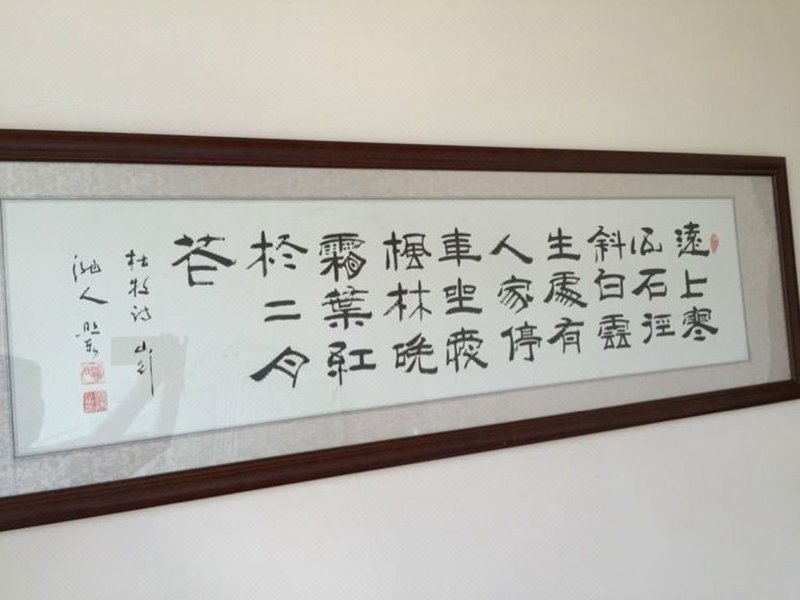 遠上寒
山石徑
斜白雲
生處有
人家停
車坐愛
楓林晚
霜葉紅
於二月
花
杜牧詩 山行